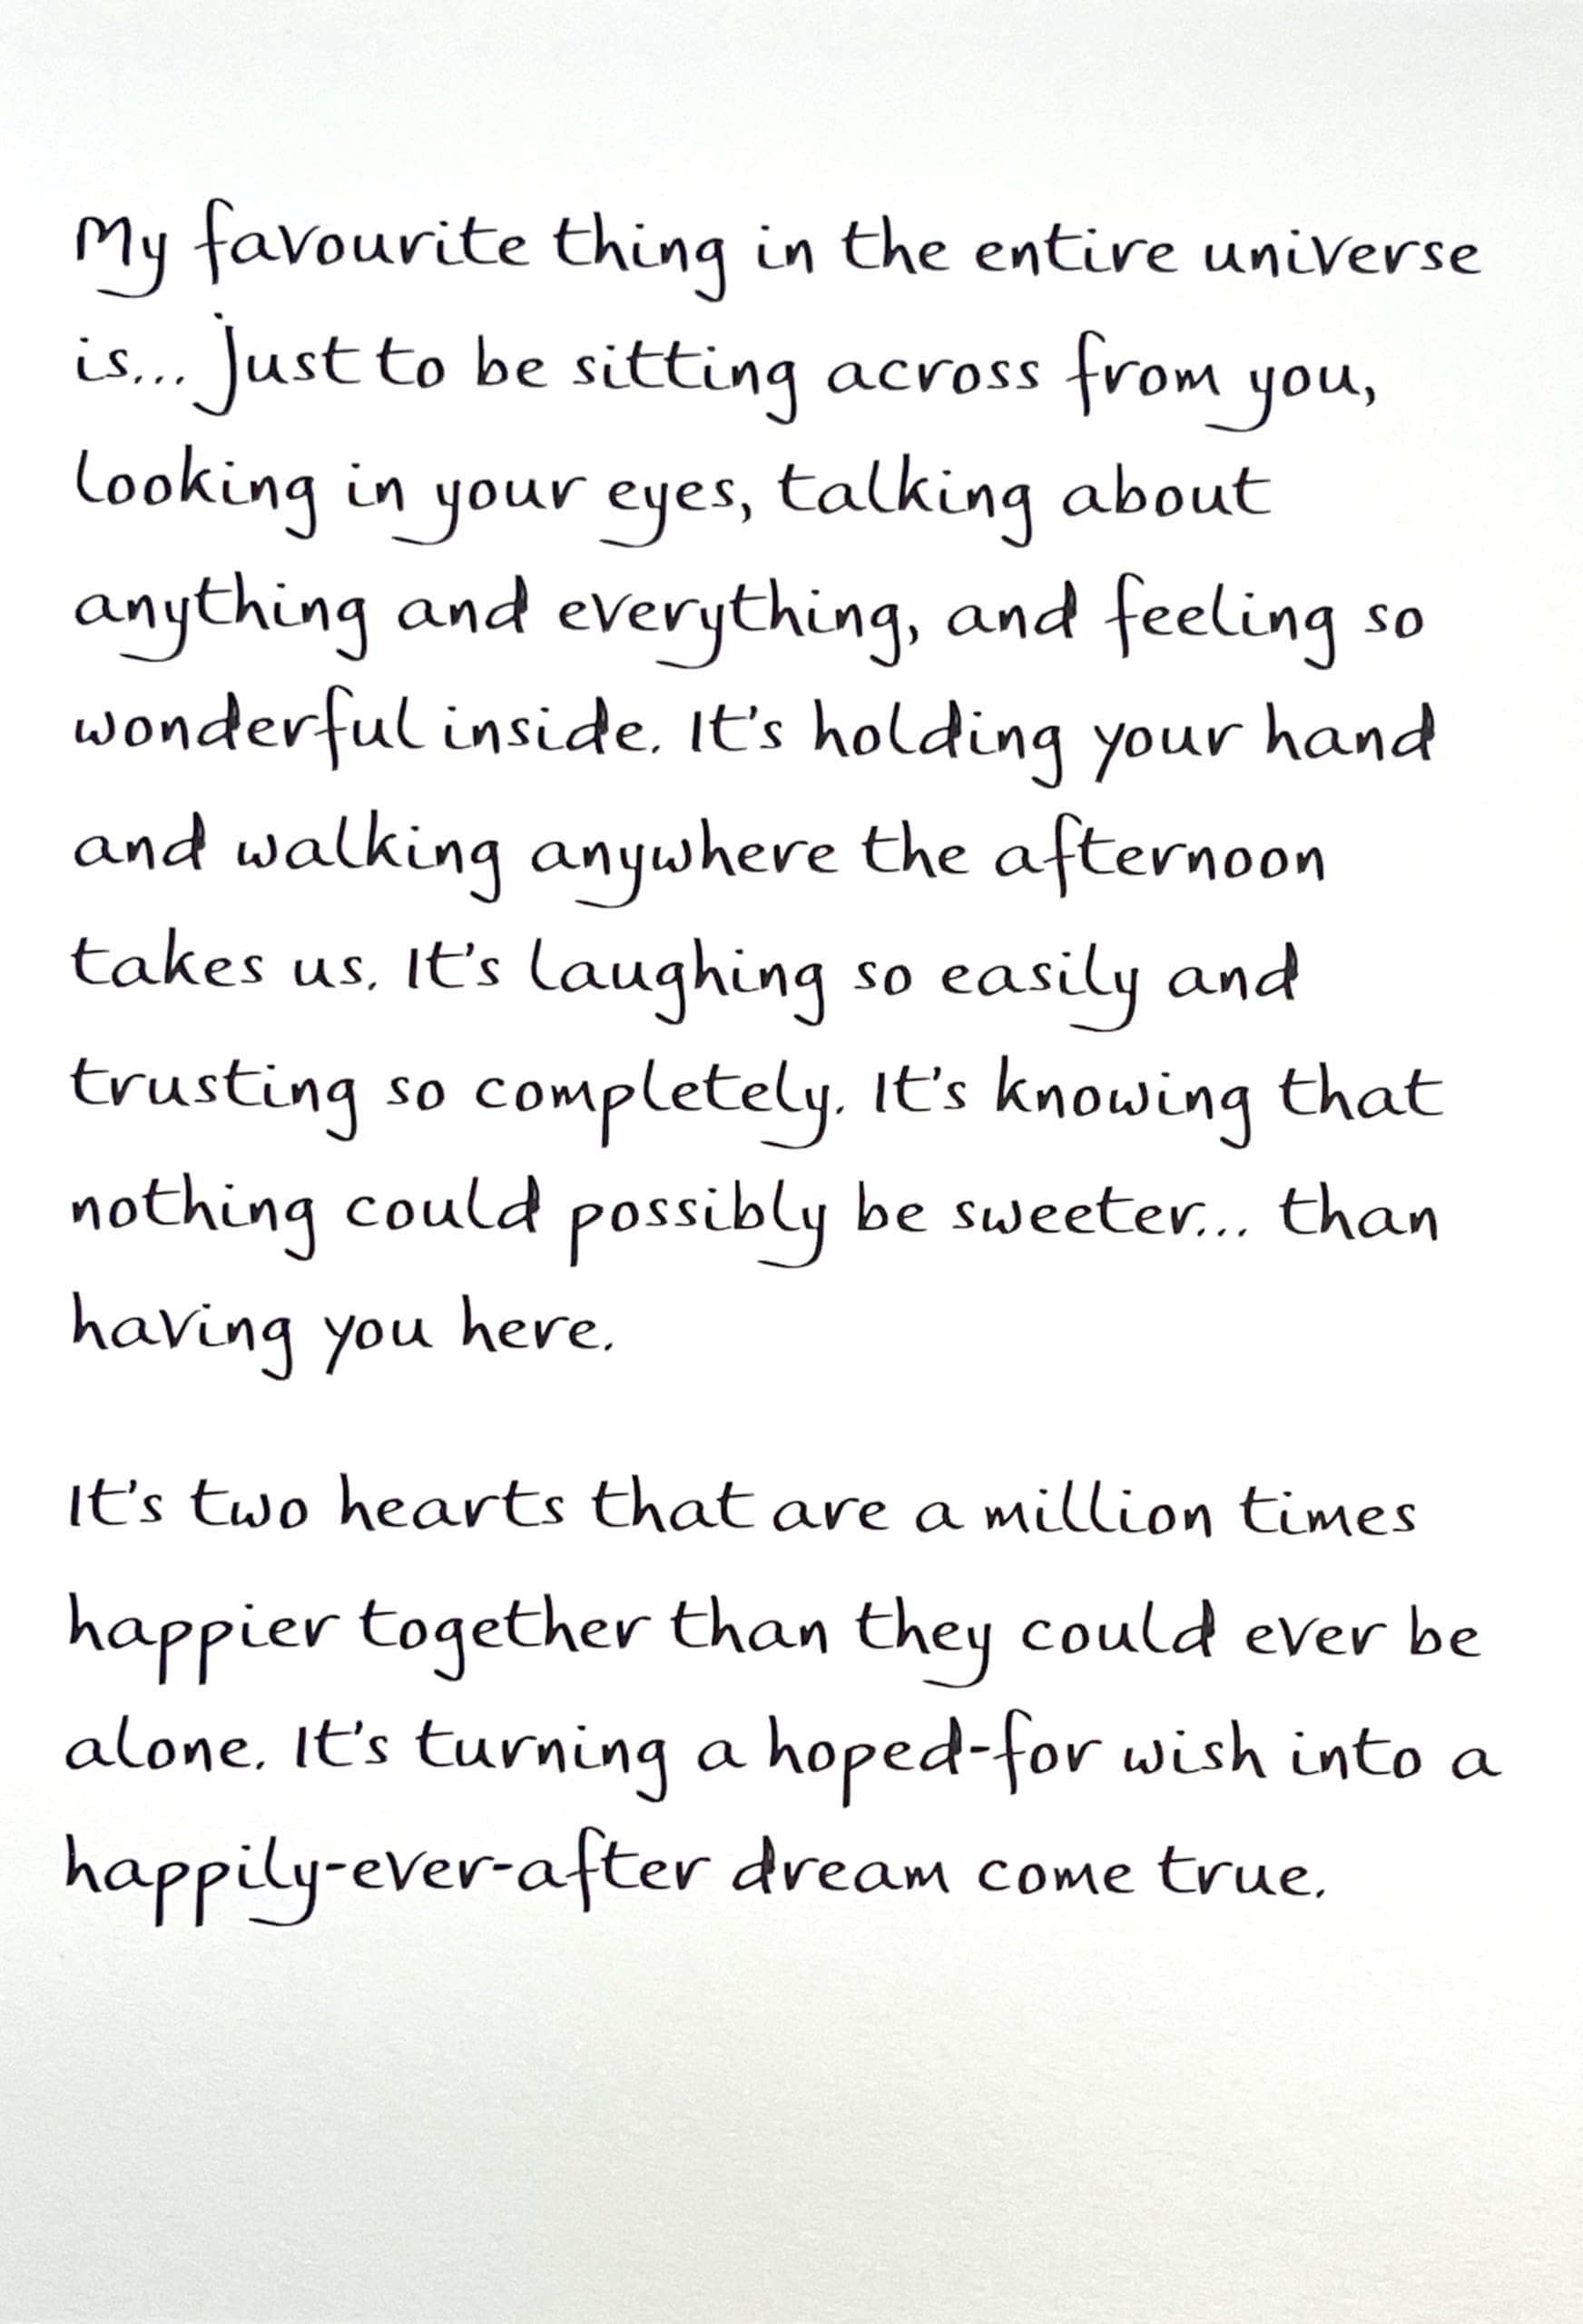 My favourite thing in the entire universe
is... just to be sitting across from you,
looking in your eyes, talking about
anything and everything, and feeling so
wonderful inside. It's holding your hand
and walking anywhere the afternoon
takes us. It's laughing so easily and
trusting so completely. It's knowing that
nothing could possibly be sweeter... than
having you here.
It's two hearts that are a million times
happier together than they could ever be
alone. It's turning a hoped-for wish into a
happily-ever-after dream come true.